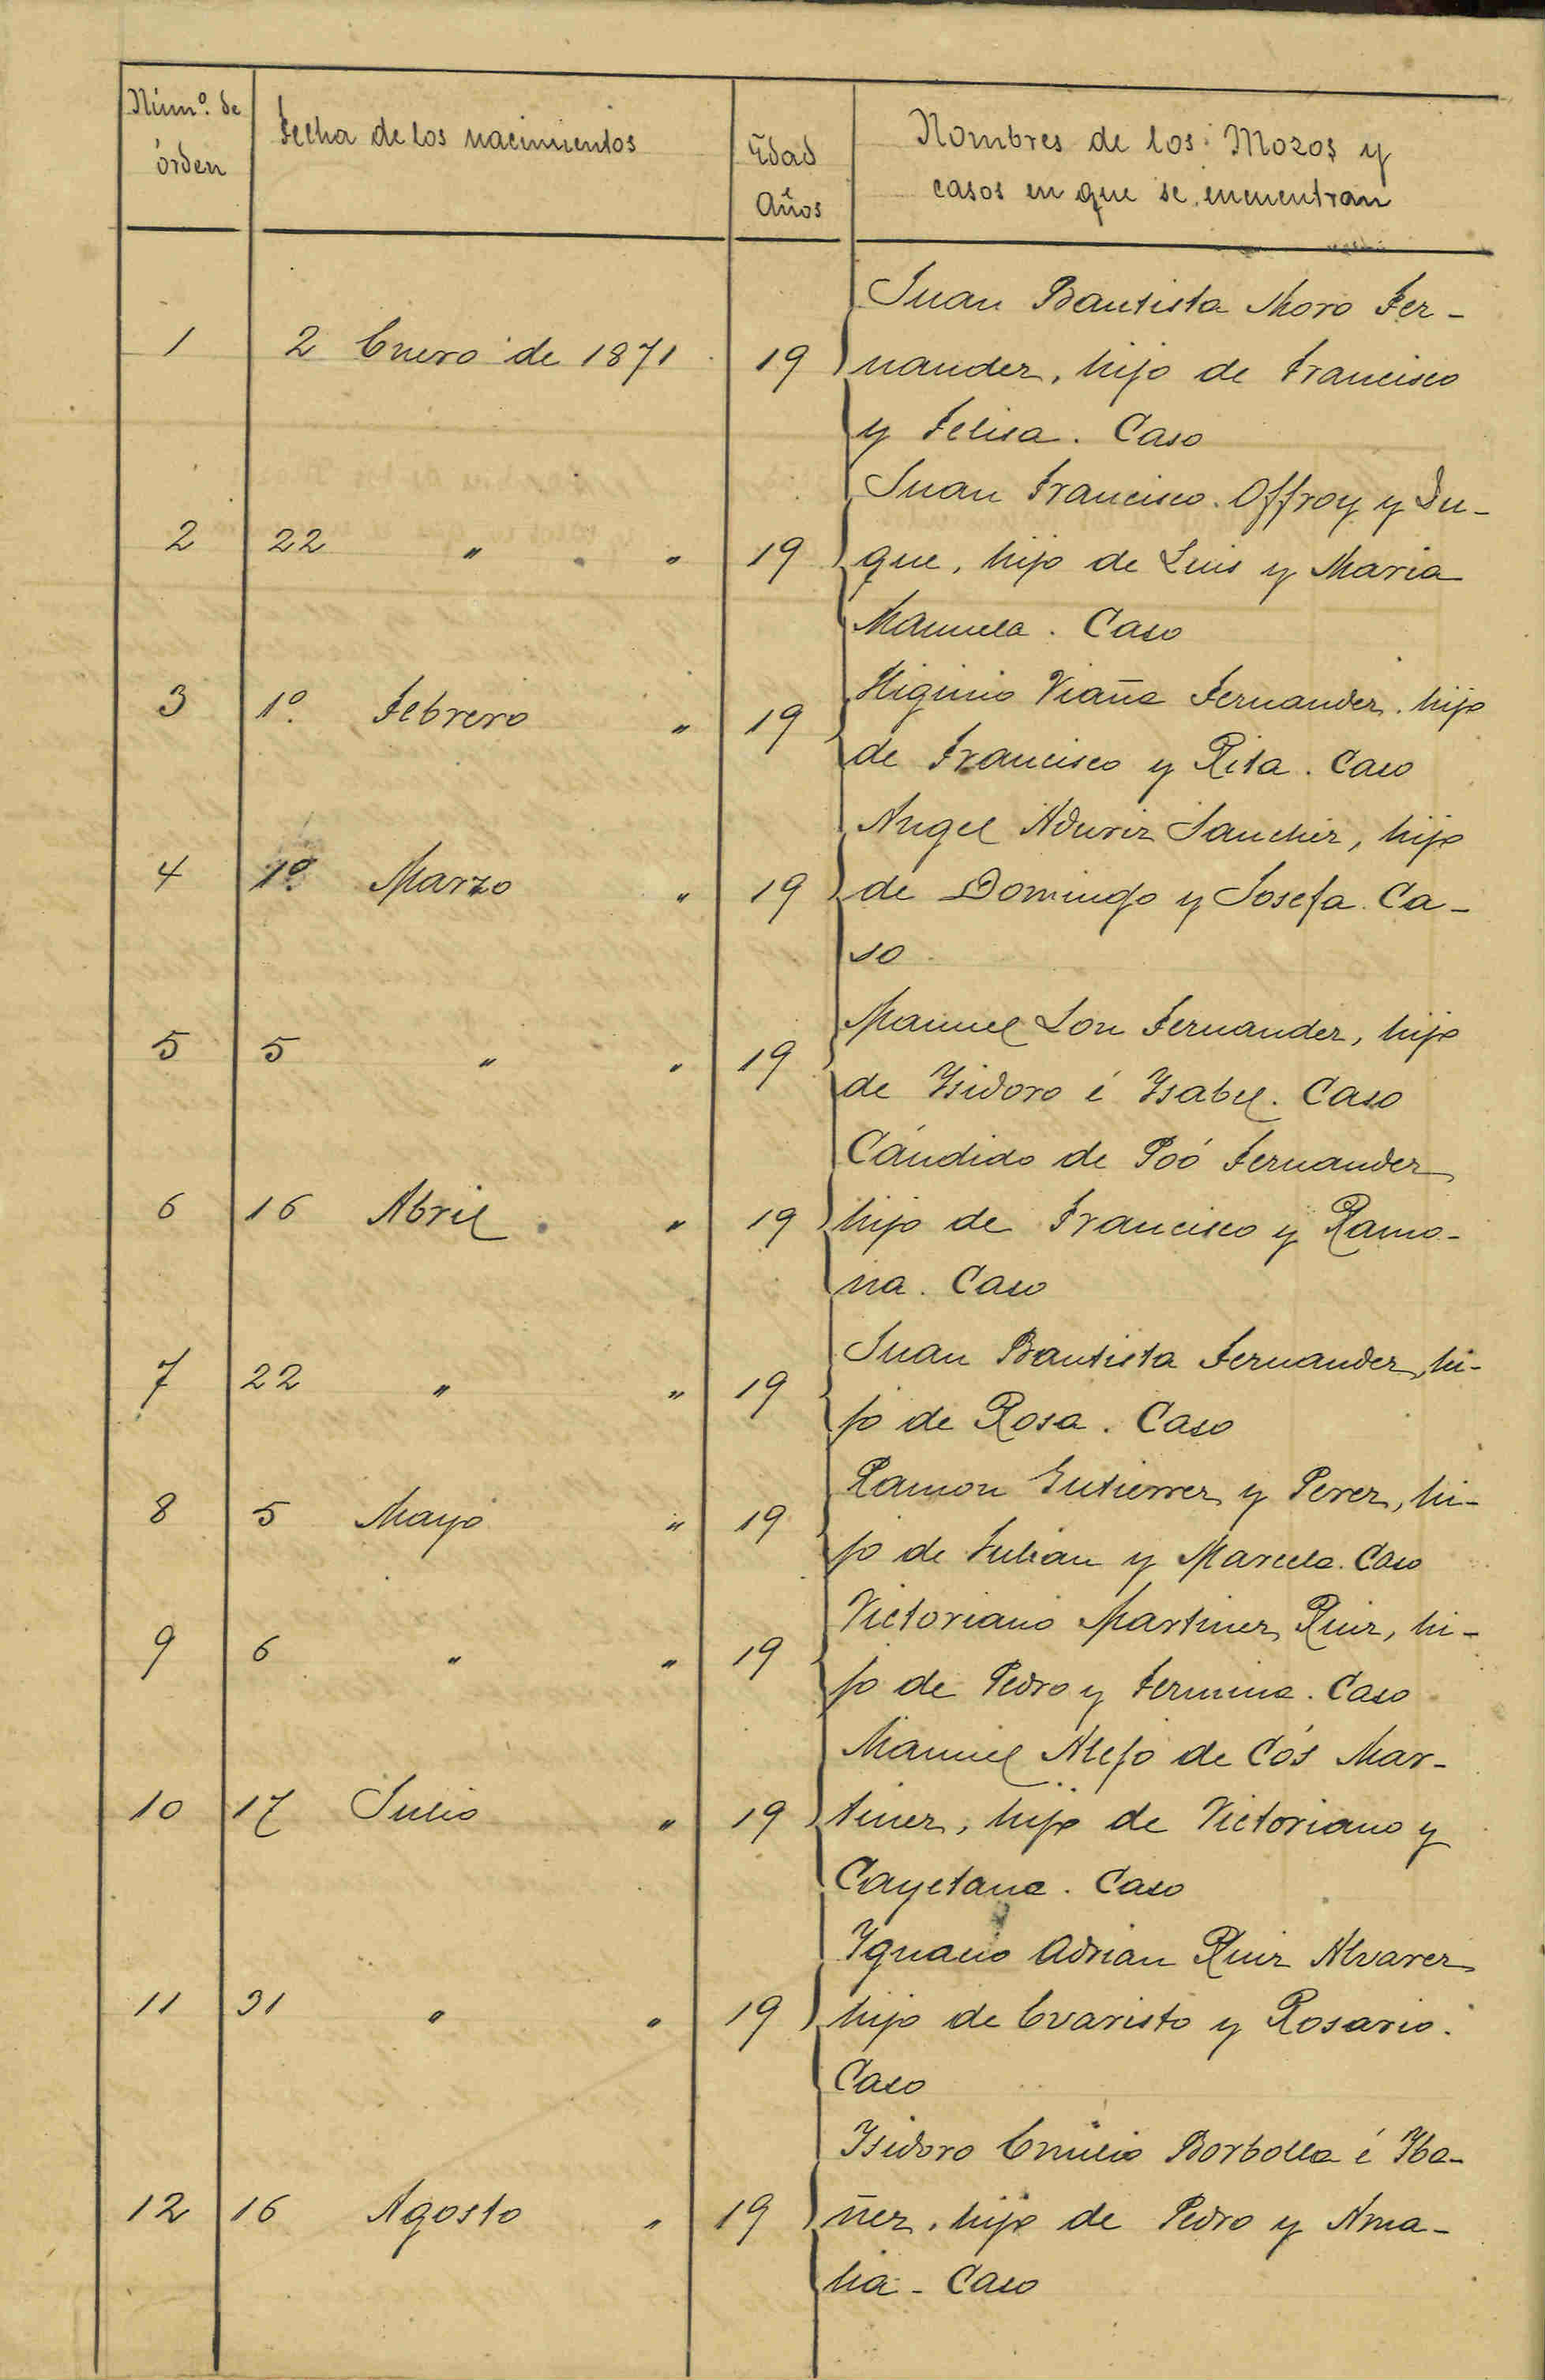 Núm.º de órden
Fecha de los nacimientos
Edad Años
Nombres de los Mozos y
casos en que se encuentran
Juan Bautista Moro Fer-
1 2 Enero de 1871 19 nandez, hijo de Francisco
y Felisa. Caso
Juan Francisco Offroy y Du-
2 22 " " 19 que, hijo de Luis y Maria
Manuela. Caso
3 1º Febrero " 19 Higinio Viaña Fernandez, hijo
de Francisco y Rita. Caso
Angel Aduriz Sanchez, hijo
4 1º Marzo " 19 de Domingo y Josefa. Ca-
so
5 5 " " 19 Manuel Lon Fernandez, hijo
de Ysidoro é Ysabel. Caso
Cándido de Poó Fernandez
6 16 Abril " 19 hijo de Francisco y Ramo-
na. Caso
7 22 " " 19 Juan Bautista Fernandez, hi-
jo de Rosa. Caso
8 5 Mayo " 19 Ramon Gutierrez y Perez, hi-
jo de Julian y Marcela. Caso
9 6 " " 19 Victoriano Martinez Ruiz, hi-
jo de Pedro y Fermina. Caso
Manuel Alejo de Cós Mar-
10 17 Julio " 19 tinez, hijo de Victoriano y
Cayetana. Caso
Ygnacio Adrian Ruiz Alvarez
11 31 " " 19 hijo de Evaristo y Rosario.
Caso
Ysidoro Emilio Borbolla é Yba-
12 16 Agosto " 19 ñez, hijo de Pedro y Ama-
lia - Caso